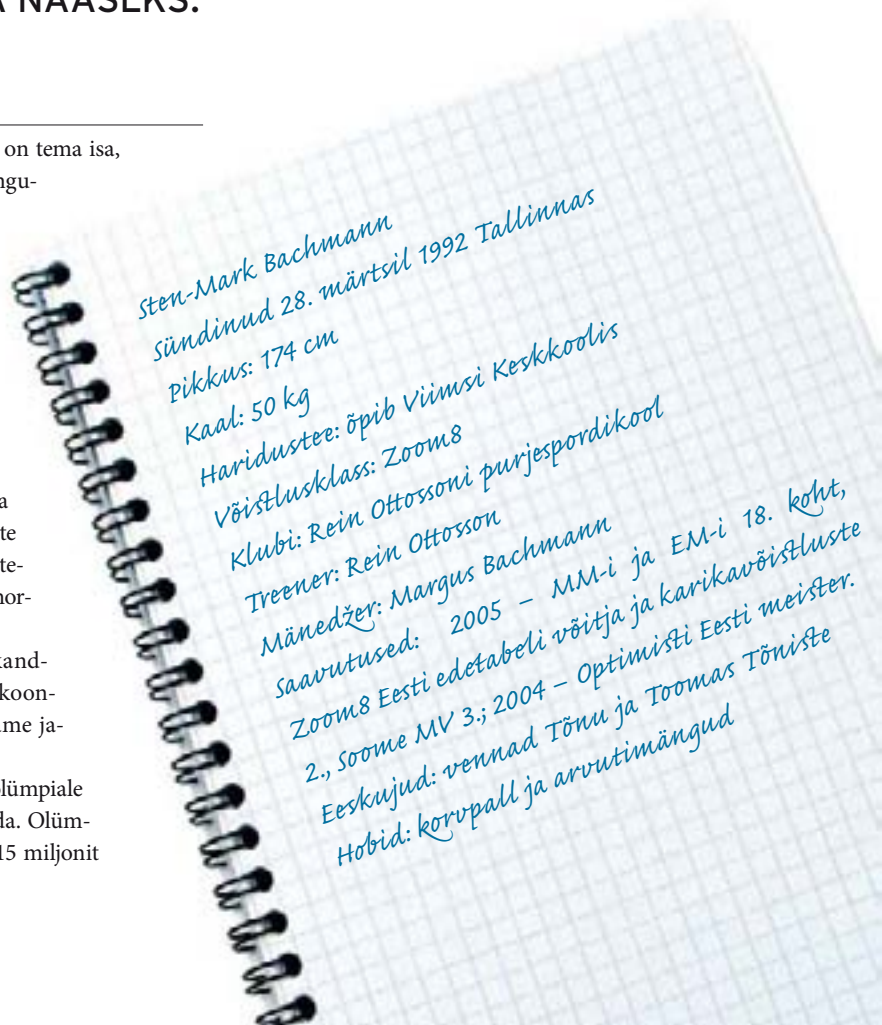 NAASEKS.
on tema isa,
ngu-
a
te
te-
hor-
kand-
koon-
me ja-
olümpiale
da. Olüm-
15 miljonit
Sten-Mark Bachmann
Sündinud 28. märtsil 1992 Tallinnas
Pikkus: 174 cm
Kaal: 50 kg
Haridustee: õpib Viimsi Keskkoolis
Võistlusklass: Zoom8
Klubi: Rein Ottossoni purjespordikool
Treener: Rein Ottosson
Mänedžer: Margus Bachmann
Saavutused: 2005 – MM-i ja EM-i 18. koht,
Zoom8 Eesti edetabeli võitja ja karikavõistluste
2., Soome MV 3.; 2004 – Optimisti Eesti meister.
Eeskujud: vennad Tõnu ja Toomas Tõniste
Hobid: korvpall ja arvutimängud